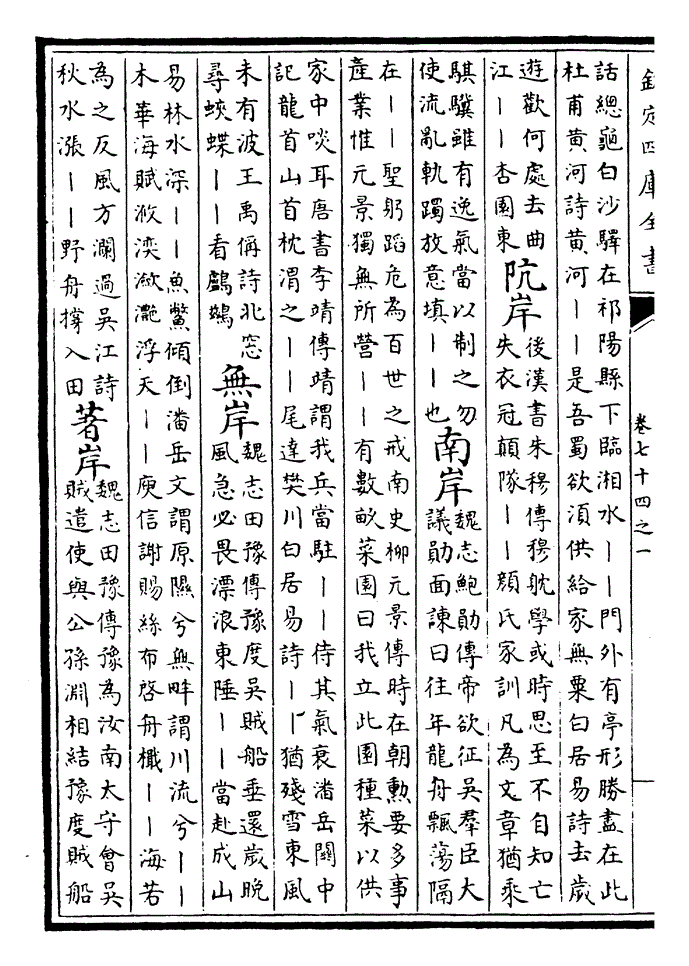 欽定四庫全書
卷七十四之一
話總龜白沙驛在祁陽縣下臨湘水丨丨門外有亭形勝盡在此
杜甫黄河詩黄河丨丨是吾蜀欲湏供給家無粟白居易詩去歲
遊歡何處去曲
江丨丨杏園東
阬岸
後漢書朱穆傳穆躭學或時思至不自知亡
失衣冠顛隊丨丨顔氏家訓凡為文章猶乘
騏驥雖有逸氣當以制之勿
使流亂軌躅放意填丨丨也
南岸
魏志鮑勛傳帝欲征吳羣臣大
議勛面諫曰往年龍舟飄蕩隔
在丨丨聖躬蹈危為百世之戒南史柳元景傳時在朝勲要多事
產業惟元景獨無所營丨丨有數畝菜園曰我立此園種菜以供
家中啖耳唐書李靖傳靖謂我兵當駐丨丨待其氣衰潘岳關中
記龍首山首枕渭之丨丨尾達樊川白居易詩丨丨猶殘雪東風
未有波王禹偁詩北窓
尋蛺蝶丨丨看鸕鷀
無岸
魏志田豫傳豫度吳賊船垂還歲晚
風急必畏漂浪東陲丨丨當赴成山
易林水深丨丨魚鱉傾倒潘岳文謂原隰兮無畔謂川流兮丨丨
木華海賦浟湙瀲灔浮天丨丨庾信謝賜絲布啓舟檝丨丨海若
為之反風方瀾過吳江詩
秋水漲丨丨野舟撐入田
著岸
魏志田豫傳豫為汝南太守會吳
賊遣使與公孫淵相結豫度賊船